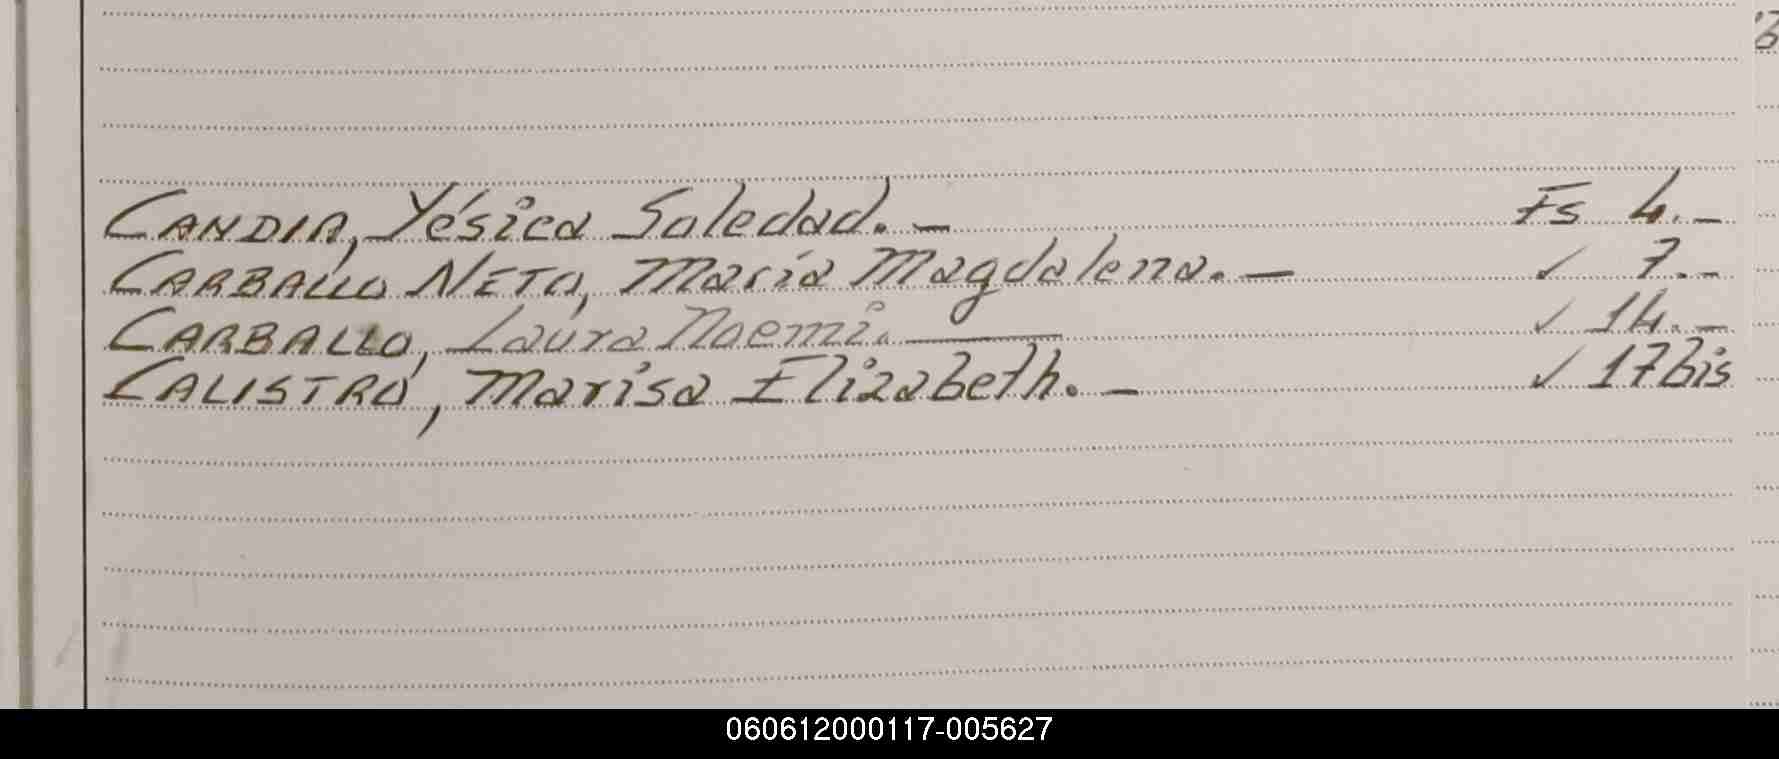 CANDIA, Yésica Soledad. — Fs 4. –
CARBALLO NETO, María Magdalena. — ✓ 7. –
CARBALLO, Laura Noemi. — ✓ 14. –
CALISTRO, Marisa Elizabeth. — ✓ 17 bis
060612000117-005627